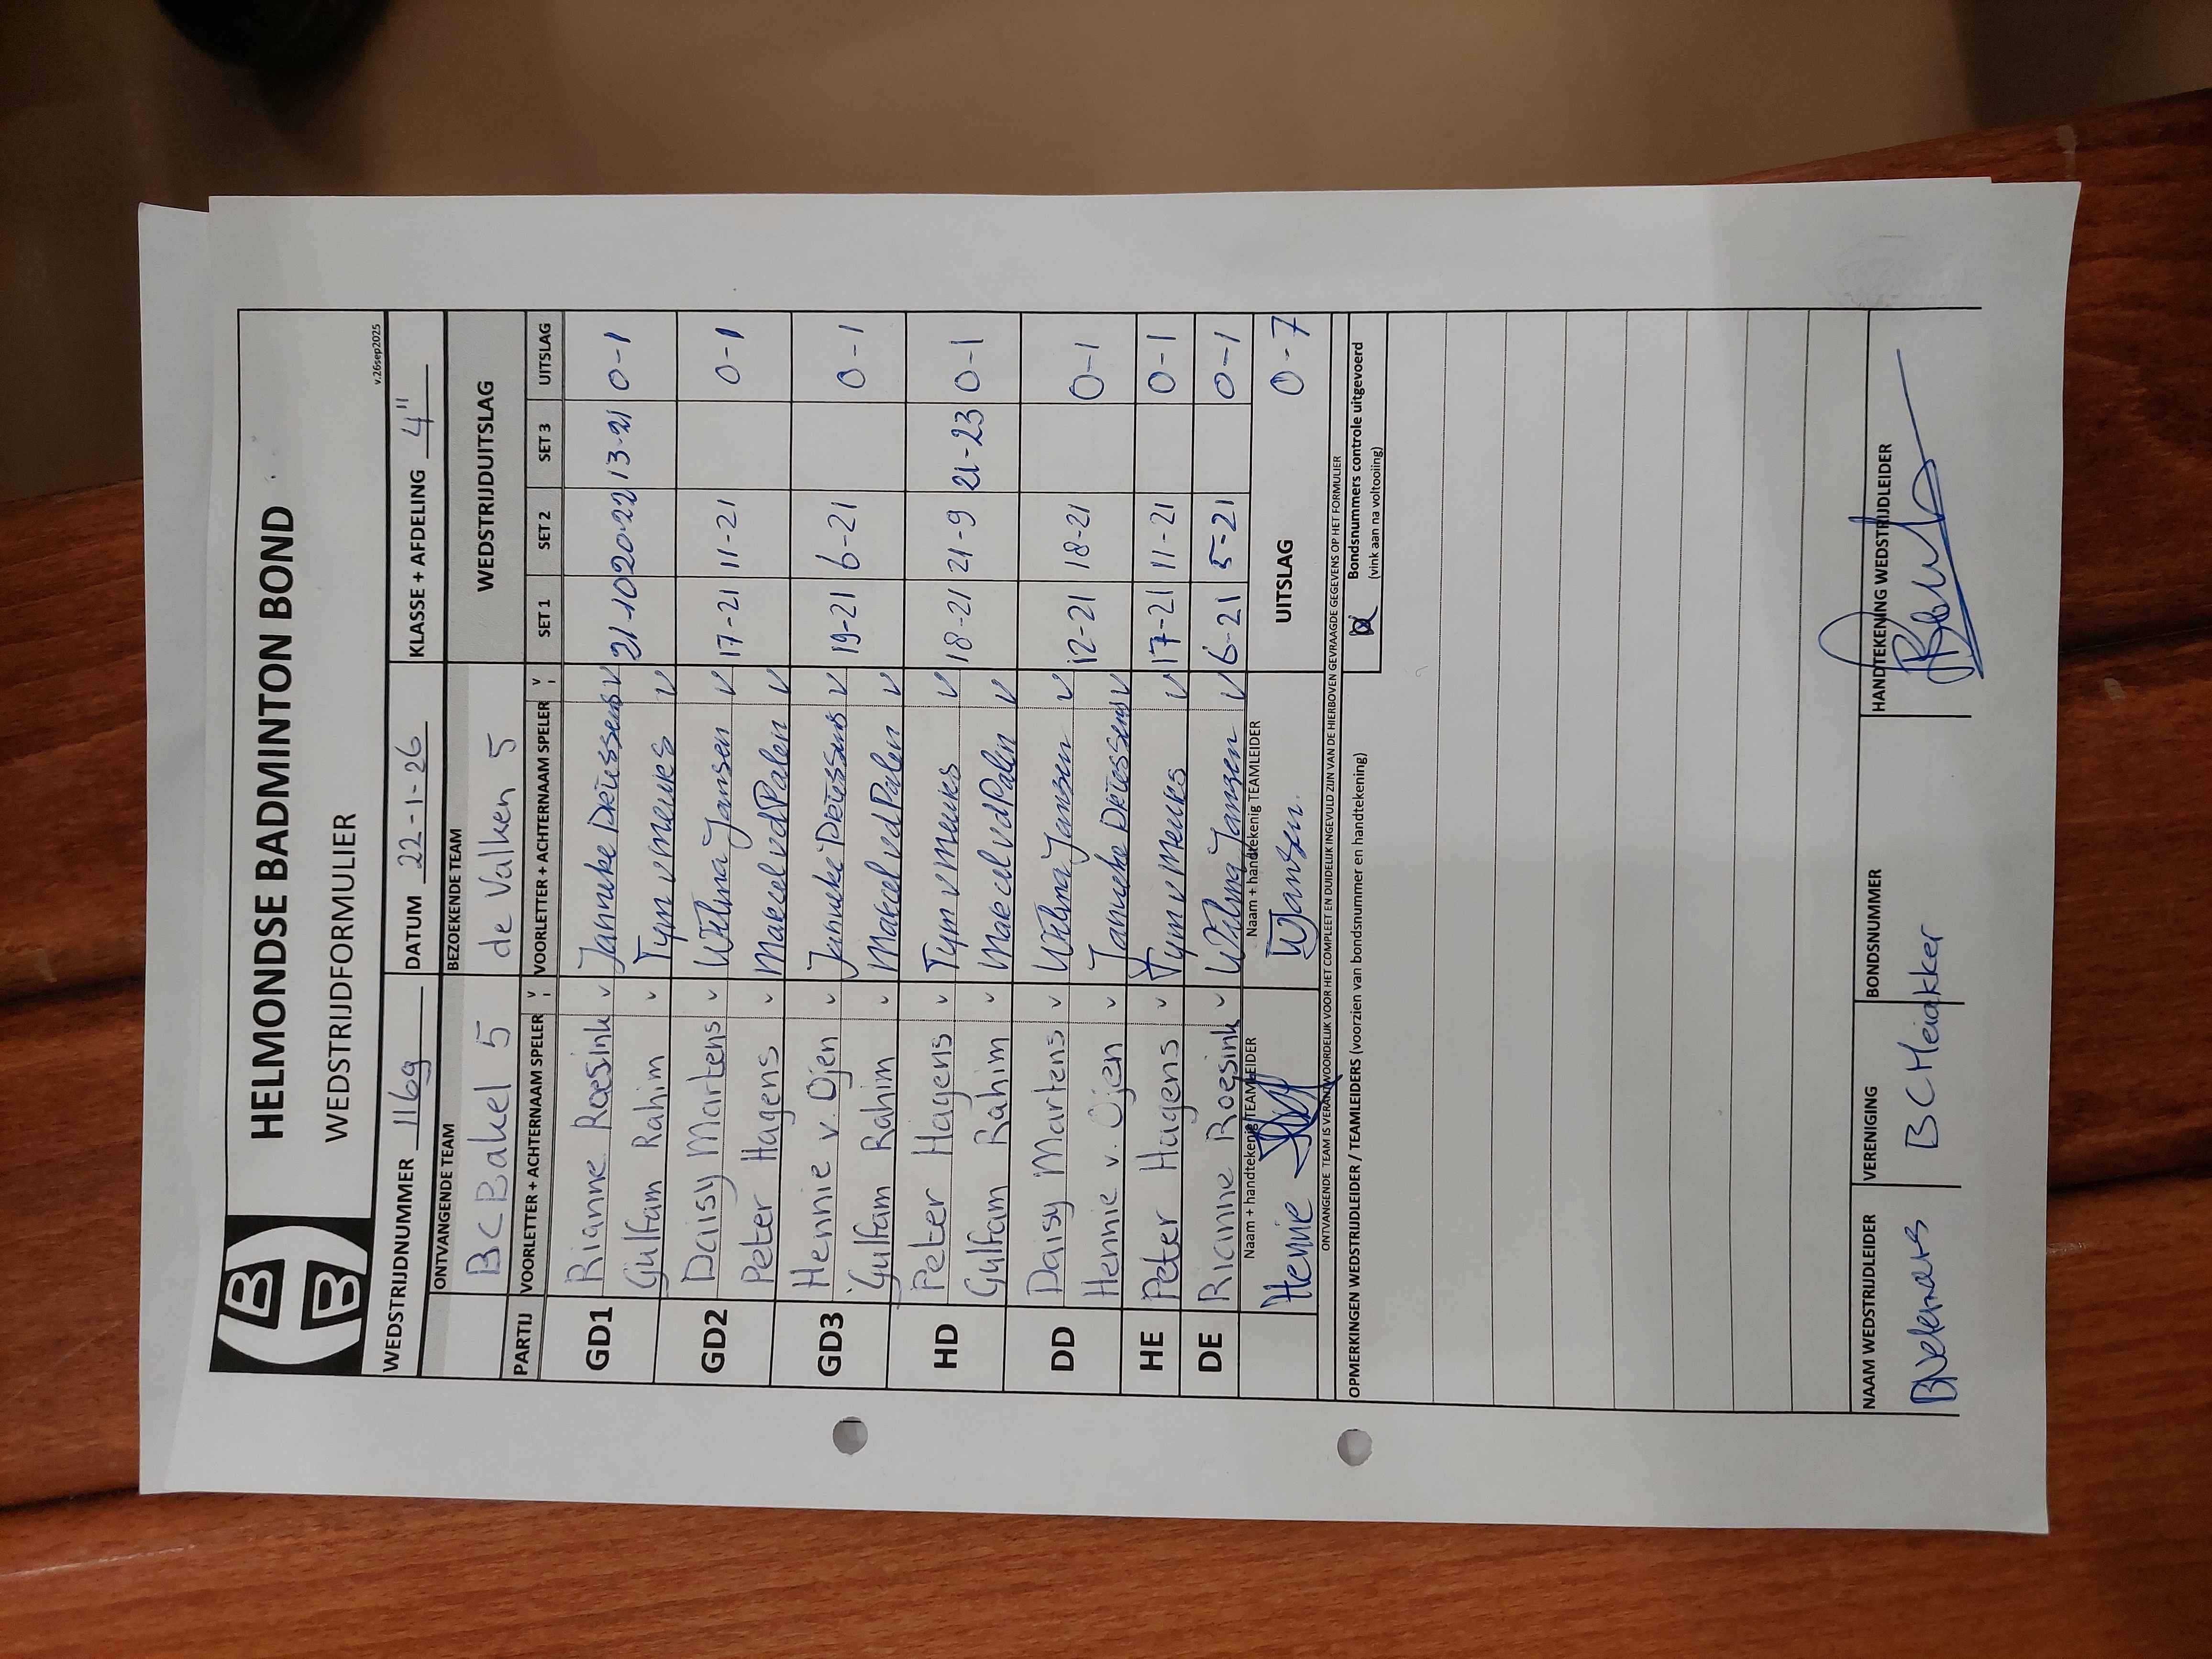 HELMONDSE BADMINTON BOND
WEDSTRIJDFORMULIER
v.26sep2025
WEDSTRIJDNUMMER 1169 DATUM 22-1-26 KLASSE + AFDELING 4"
ONTVANGENDE TEAM BEZOEKENDE TEAM WEDSTRIJDUITSLAG
BC Bakel 5 de Valken 5
PARTIJ VOORLETTER + ACHTERNAAM SPELER V VOORLETTER + ACHTERNAAM SPELER V SET 1 SET 2 SET 3 UITSLAG
GD1 Rianne Roesink v Janneke Driessens v 21-10 20-22 13-21 0-1
Gulfam Rahim v Tym v Meurs v
GD2 Daisy Martens v Wilma Jansen v 17-21 11-21 0-1
Peter Hagens v Marcel vd Palen v
GD3 Hennie v. Oijen v Janneke Driessens v 19-21 6-21 0-1
Gulfam Rahim v Marcel vd Palen v
HD Peter Hagens v Tym v Meurs v 18-21 21-9 21-23 0-1
Gulfam Rahim v Marcel vd Palen v
DD Daisy Martens v Wilma Jansen v 12-21 18-21 0-1
Hennie v. Oijen v Janneke Driessens v
HE Peter Hagens v Tym v Meurs v 17-21 11-21 0-1
DE Rianne Roesink v Wilma Jansen v 6-21 5-21 0-1
Naam + handtekenig TEAMLEIDER Naam + handtekenig TEAMLEIDER UITSLAG 0-7
Hennie WJansen
ONTVANGENDE TEAM IS VERANTWOORDELIJK VOOR HET COMPLEET EN DUIDELIJK INGEVULD ZIJN VAN DE HIERBOVEN GEVRAAGDE GEGEVENS OP HET FORMULIER
OPMERKINGEN WEDSTRIJDLEIDER / TEAMLEIDERS (voorzien van bondsnummer en handtekening)
Bondsnummers controle uitgevoerd
(vink aan na voltooiing)
NAAM WEDSTRIJDLEIDER VERENIGING BONDSNUMMER HANDTEKENING WEDSTRIJDLEIDER
BC Meiakker